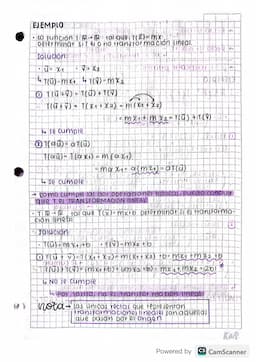 EJEMPLO
• La función T: ℝ→ℝ tal que T(x)=mx
Determinar si T es o no transformación lineal.
Solución:
• ū= x₁ • v̄= x₂
↳ T(ū)=mx₁ ↳ T(v̄)=mx₂
① T(ū+v̄)= T(ū)+T(v̄)
T(ū+v̄)= T(x₁+x₂)= m(x₁+x₂)
= mx₁+mx₂ = T(ū)+T(v̄)
↳ Se cumple
② T(αū)= αT(ū)
T(αū)= T(αx₁)= m(αx₁)
= mαx₁= α(mx₁)= αT(ū)
↳ Se cumple
→ Como cumple las dos operaciones básicas, puedo concluir
que T es TRANSFORMACIÓN LINEAL
• T: ℝ→ℝ tal que T(x)=mx+b determinar si es transforma-
ción lineal.
• Solución
• T(ū)= mx₁+b • T(v̄)= mx₂+b
① T(ū+v̄)= T(x₁+x₂)= m(x₁+x₂)+b= mx₁+mx₂+b
T(ū)+T(v̄)= (mx₁+b)+(mx₂+b)= mx₁+mx₂+2b
↳ NO se cumple
Por tanto, no es transformación lineal
NOTA→ Las únicas rectas que representan
transformaciones lineales son aquellas
que pasan por el origen
Powered by CamScanner